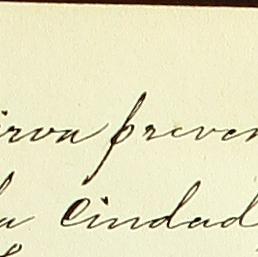 irva preven
la ciudad